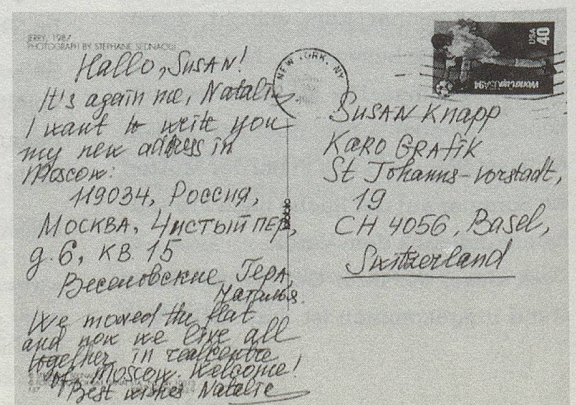 JERRY, 1987
PHOTOGRAPH BY STEPHANE SEDNAOUI
Hallo, SUSAN!
It's again me, Natalie.
I want to write you
my new address in
Moscow:
119034, Россия,
Москва, Чистый пер,
д. 6, кв. 15
Веселовские, Гера,
Наталья.
We moved the flat
and now we live all
together in realcentre
of Moscow. Welcome!
Best wishes Natalie
NEW YORK, NY
USA 40
WorldCupUSA94
SUSAN Knapp
KARO GRAFIK
St Johanns-vorstadt,
19
CH 4056, Basel,
Switzerland